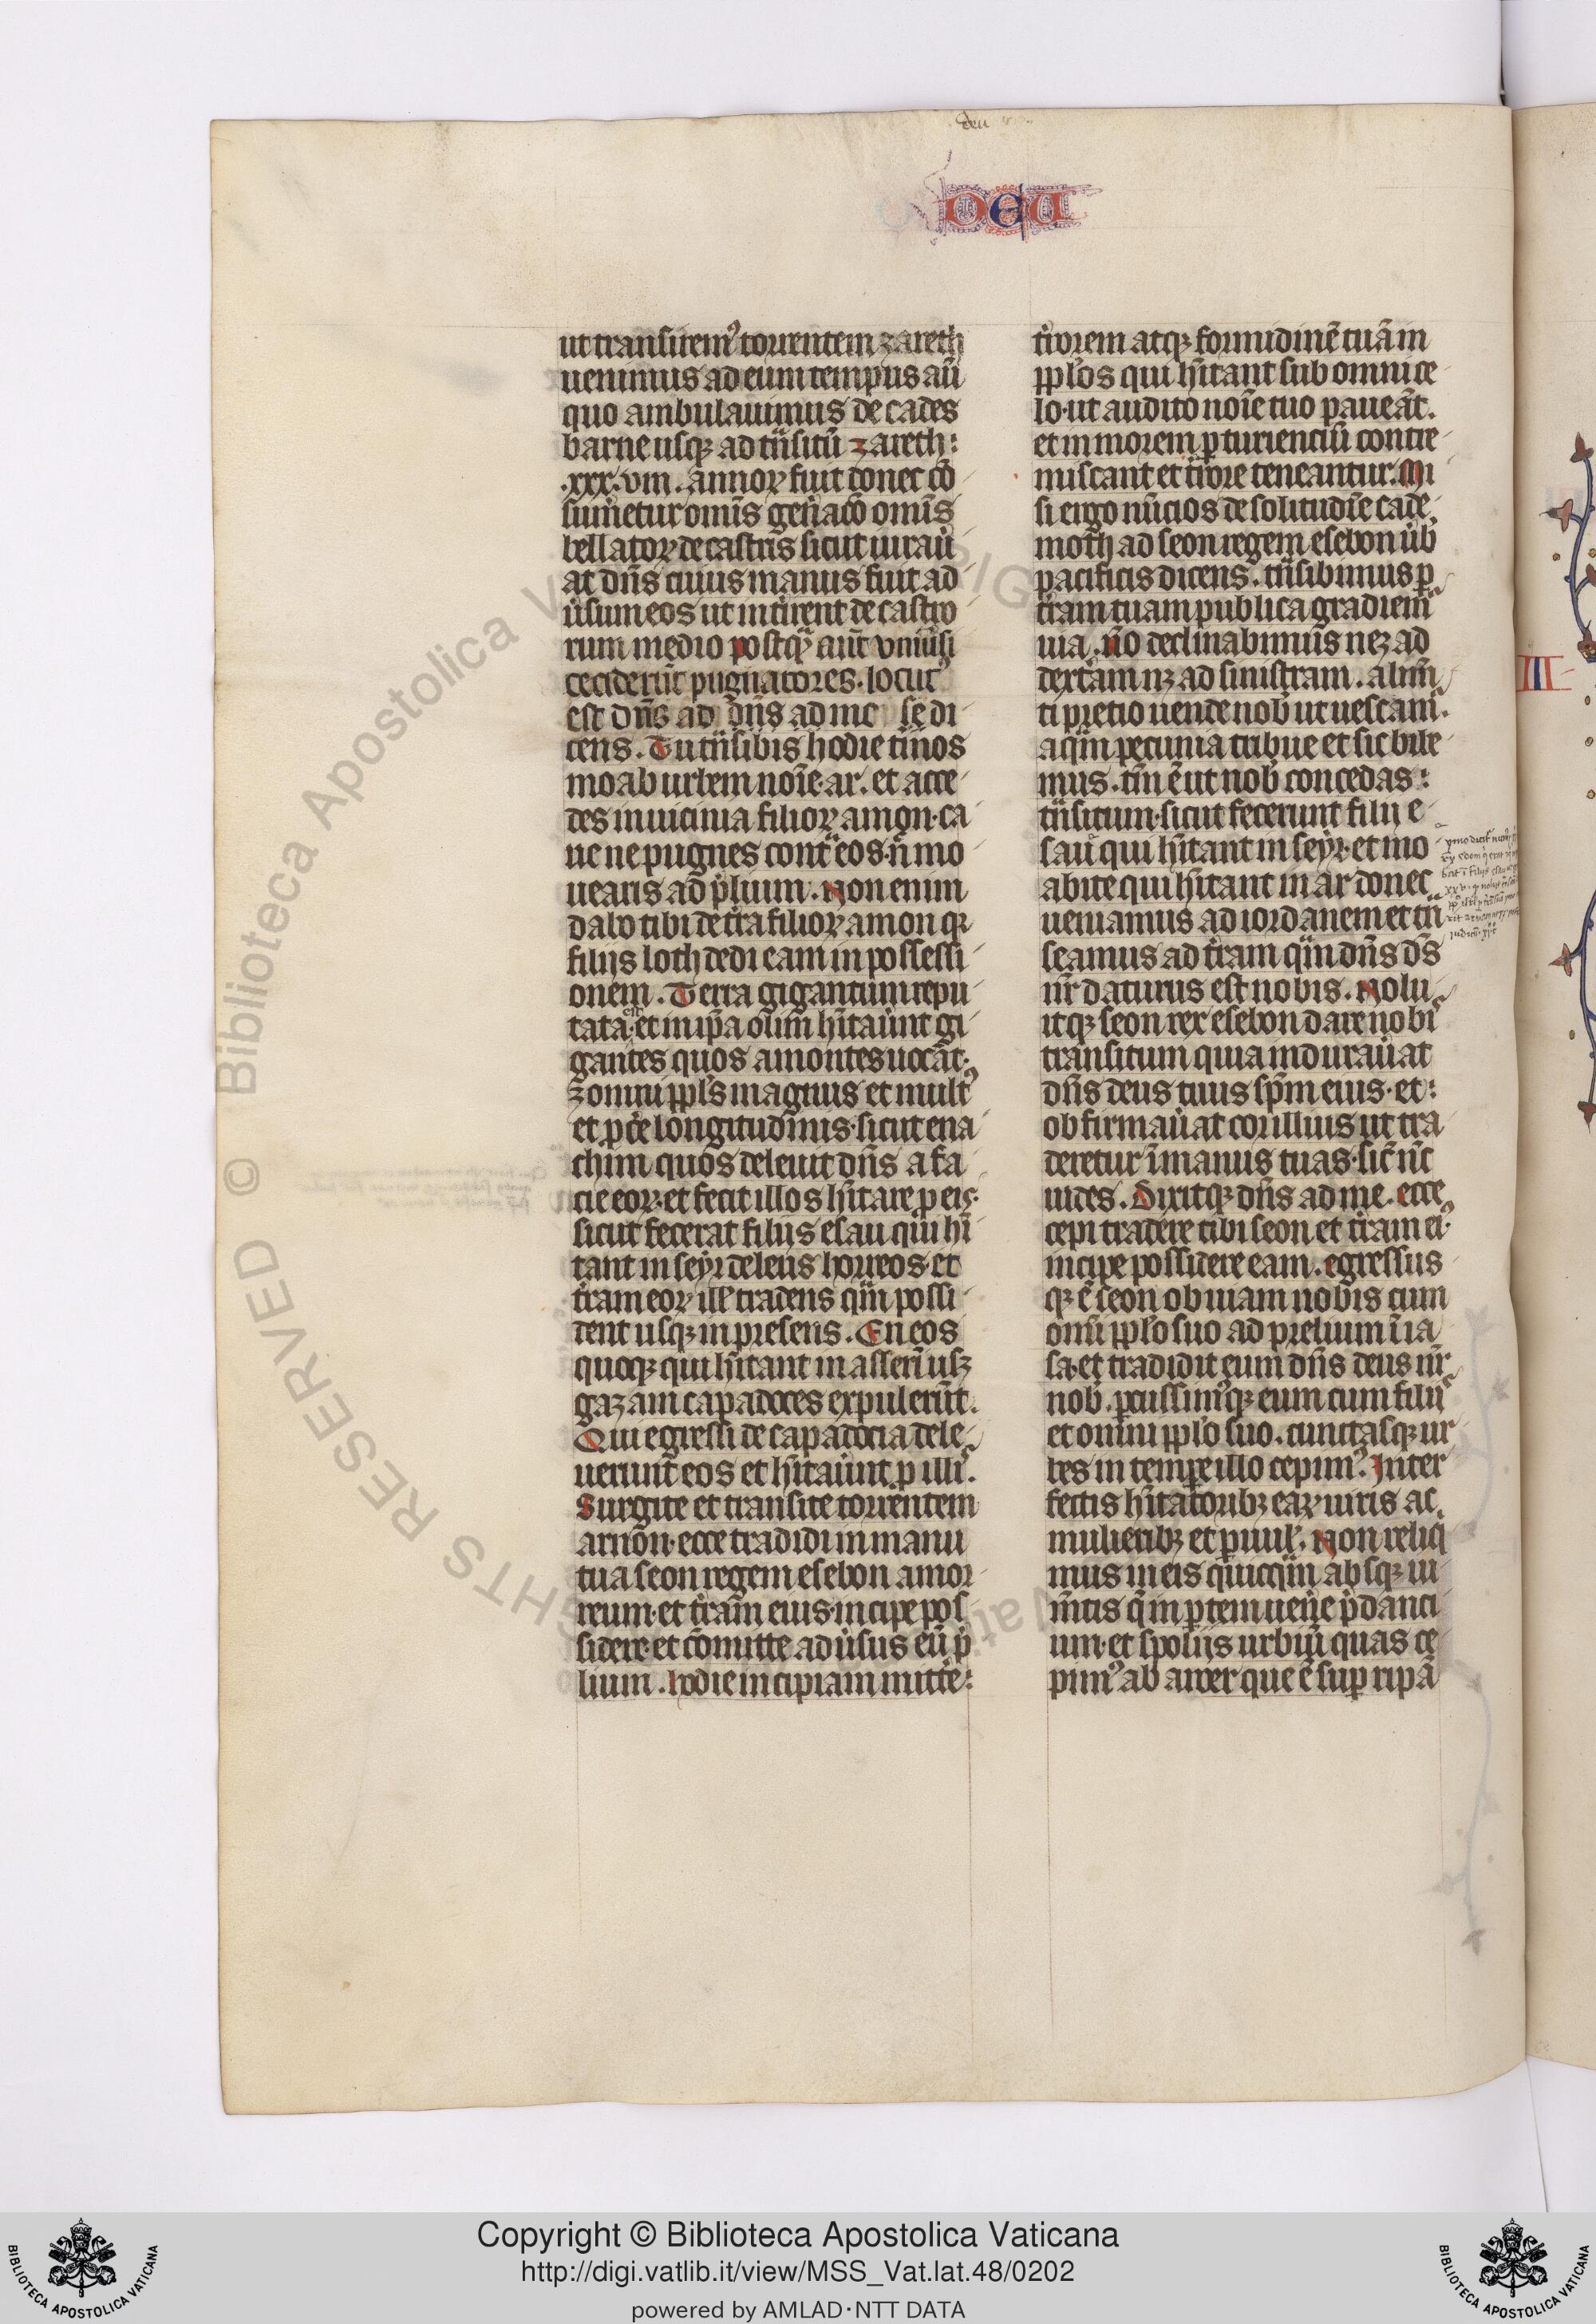 deu
DEU
ut transirem⁹ torrentem zareth
uenimus ad eum tempus aū
quo ambulauimus de cades
barne usqꝫ ad tͥnsitū zareth:
.xxx.viii. annoꝝ fuit donec cō
sum̄etur omīs gen̄acō omīs
bellatoꝝ de castris sicut iurau͛
at dn̄s cuius manus fuit ad
u͛sum eos ut int͛irent de castro
rum medio postqͣꝫ aūt vniu͛si
ceciderūt pugnatores. locut⁹
est dn̄s ad dn̄s ad me se di
cens. Tu tͥnsibis hodie tm̄nos
moab urbem noīe. ar. et acce
des in uicinia filioꝝ amon. ca
ue ne pugnes contͣ eos. n̄ mo
uearis ad p̄lium. Non enim
dabo tibi de t͛ra filioꝝ amon qꝛ
filijs loth dedi eam in possessi
onem. Terra gigantum repu
tata est et in ip̄a olim̄ hītau͛unt gi
gantes quos amontes uocāt.
zomim ppl̄s magnus et mult⁹
et ꝓc͛e longitudinis. sicut ena
chim quos deleuit dn̄s a fa
cie eoꝝ. et fecit illos hītare ꝓ eis.
sicut fecerat filijs esau qui hī
tant in seyr delens horreos. et
t͛ram eoꝝ ill̄ tradens qͣm possi
dent usqꝫ in presens. En eos
quoqꝫ qui hītant in asserī usqꝫ
gazam capadoces expulerūt.
Qui egressi de capadocia dele
uerunt eos et hītau͛unt ꝓ illi⁹.
Surgite et transite torrentem
arnon. ecce tradidi in manu
tua seon regem esebon amor
reum. et t͛ram eius. incipe pos
sidere. et cōmitte adu͛sus eū p̄
lium. hodie incipiam mitte͛:
t͛rorem atqꝫ formidinē tuā in
ppl̄os qui hītant sub omni ce
lo. ut audito noīe tuo paueāt.
et in morem ꝑturientiū contre
miscant et t͛rore teneantur. Mi
si ergo nūcios de solitudīe cade
moth ad seon regem esebon u͛b
pacificis dicens. tͥnsibimus ꝑ
t͛ram tuam publica gradiem⁹
uia. nō declinabimus neqꝫ ad
dextram nꝫ ad sinistram. alim̄
ti pretio uende nob̄ ut uescam⁹.
aqͣm pecunia tribue et sic bibe
mus. tm̄ ē ut nob̄ concedas:
tͥnsitum. sicut fecerunt filij e
sau qui hītant in seyr. et mo
abite qui hītant in ar donec
ueniamus ad iordanem et tͥn
seamus ad t͛ram qͣm dn̄s ds̄
nr̄ daturus est nobis. Nolu
itqꝫ seon rex esebon dare nobi⁹
transitum quia indurau͛at
dn̄s deus tuus spm̄ eius. et:
obfirmau͛at cor illius ut tra
deretur ī manus tuas. sic̄ nc̄
uides. Dixitqꝫ dn̄s ad me. ecce
cepi tradere tibi seon et t͛ram ei⁹.
incipe possidere eam. egressus
qꝫ ē seon obuiam nobis cum
omī ppl̄o suo ad prelium ī ia
sa. et tradidit eum dn̄s deus nr̄
nob̄. ꝑcussim⁹qꝫ eum cum filij⁹
et omni ppl̄o suo. cunctasqꝫ ur
bes in tempe͛ illo cepim⁹. Inter
fectis hītatoribꝫ eaꝝ uiris ac
mulieribꝫ et ꝑuul̄. Non reliq̄
mus in eis quicqͣm absqꝫ iu
m̄tis q̄ in ꝑtem uen͛e p̄danci
um. et spolijs urbiū quas ce
pim⁹ ab aroer que ē suꝑ ripā
III
Copyright © Biblioteca Apostolica Vaticana
http://digi.vatlib.it/view/MSS_Vat.lat.48/0202
powered by AMLAD·NTT DATA
BIBLIOTECA APOSTOLICA VATICANA
BIBLIOTECA APOSTOLICA VATICANA